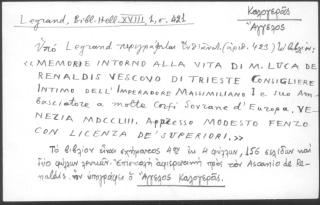 Legrand, Bibl. Hell. XVIII, 1, σ. 421
Καλογερᾶς
Ἄγγελος
Ὑπὸ Legrand περιγράφεται (ἀριθ. 423) τὸ βιβλίον:
«MEMORIE INTORNO ALLA VITA DI M. LUCA DE
RENALDIS VESCOVO DI TRIESTE CONSIGLIERE
INTIMO DELL' IMPERADORE MASSIMILIANO I e suo Am-
basciatore a molte Corti Sovrane d'Europa. VE-
NEZIA MDCCLIII. Appresso MODESTO FENZO
CON LICENZA DE' SUPERIORI.»
Τὸ βιβλίον εἶναι σχήματος 4ον ἐκ 4 φύλλων, 156 σελίδων καὶ
δύο φύλλων λευκῶν. Ἐπιστολὴ ἀφιερωτικὴ πρὸς τὸν Ascanio de Re-
naldis, ἣν ὑπογράφει ὁ Ἄγγελος Καλογερᾶς.